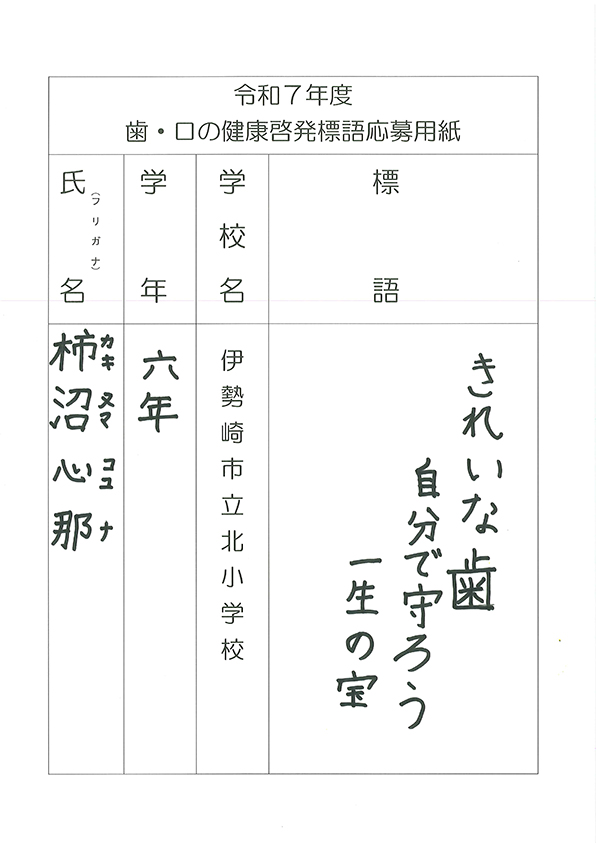 令和7年度
歯・口の健康啓発標語応募用紙
標語
きれいな歯
自分で守ろう
一生の宝
学校名
伊勢崎市立北小学校
学年
六年
氏名
(フリガナ)
柿沼心那
カキヌマココナ